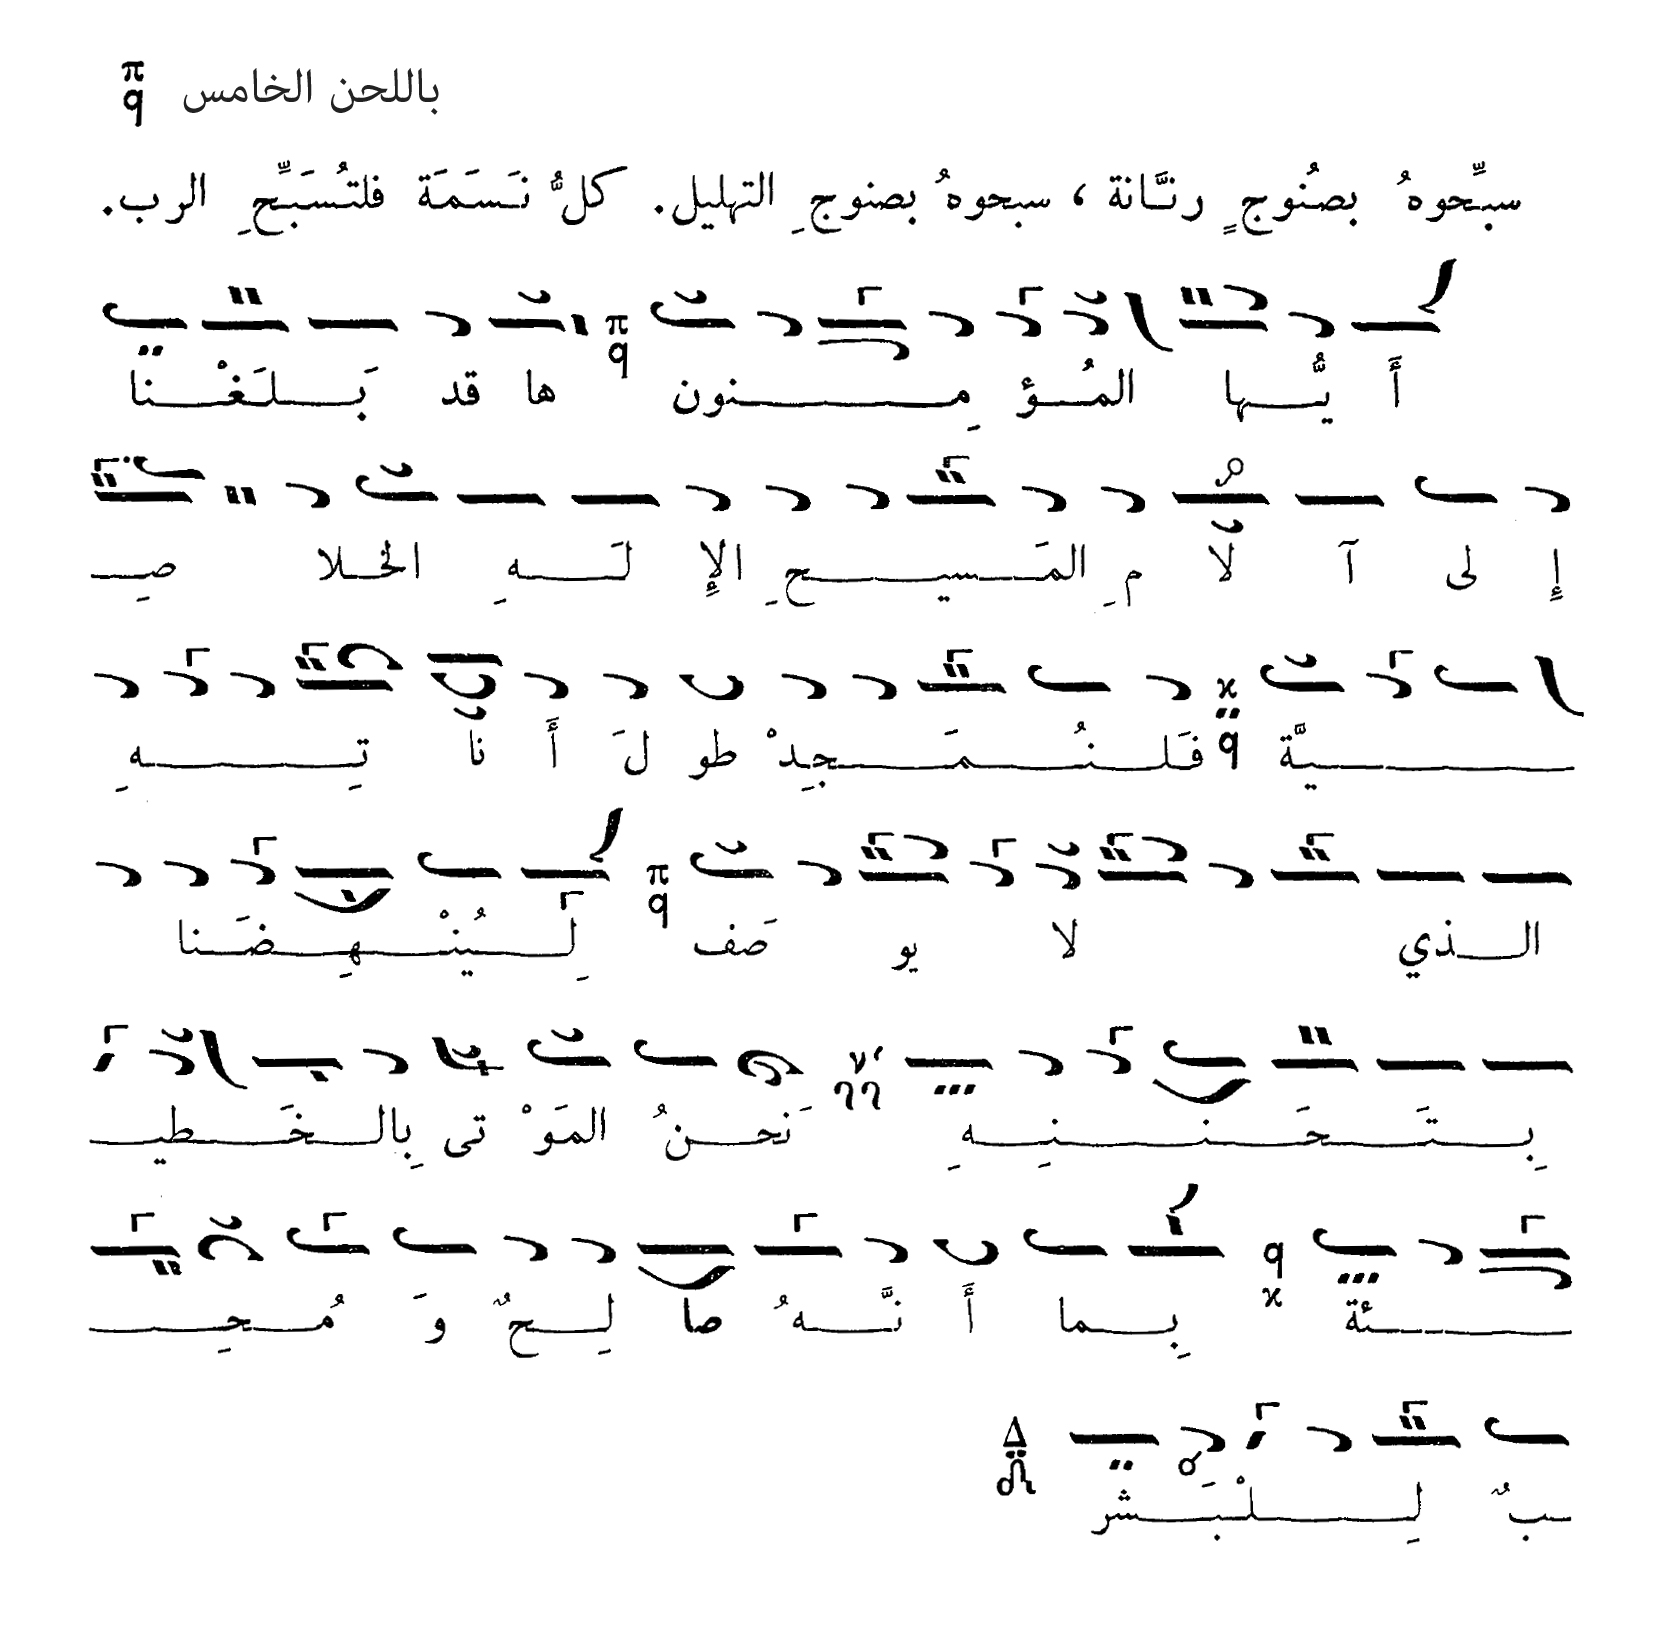 باللحن الخامس π q
سبِّحوهُ بصُنُوجٍ رنَّانة ، سبحوهُ بصنوجِ التهليل. كلُّ نَسَمَة فلتُسَبِّحِ الرب.
π q
أَ يُّـــها المُـــؤ مِـــنون ها قد بَـــلَـغْـــنا
إِ لى آ لَا مِ المَـــسيـــحِ الإِ لَـــهِ الخـــلا صِـــ
ϰ q
ـــيَّة فَـلـــنُـــمَـــجِدْ طو لَ أَ نا تِـــهِ
π q
الـــذي لا يو صَف لِـــيُنْـــهِـــضَـــنا
ν
بِـــتَـــحَـــنـــنِـــهِ نَحـــنُ المَوْ تى بِالـــخَـــطيـــ
q ϰ
ـــئة بِـــما أَ نَّـــهُ صا لِـــحٌ وَ مُـــحِـــ
Δ
ـبٌ لِـــلْـــبَـــشر